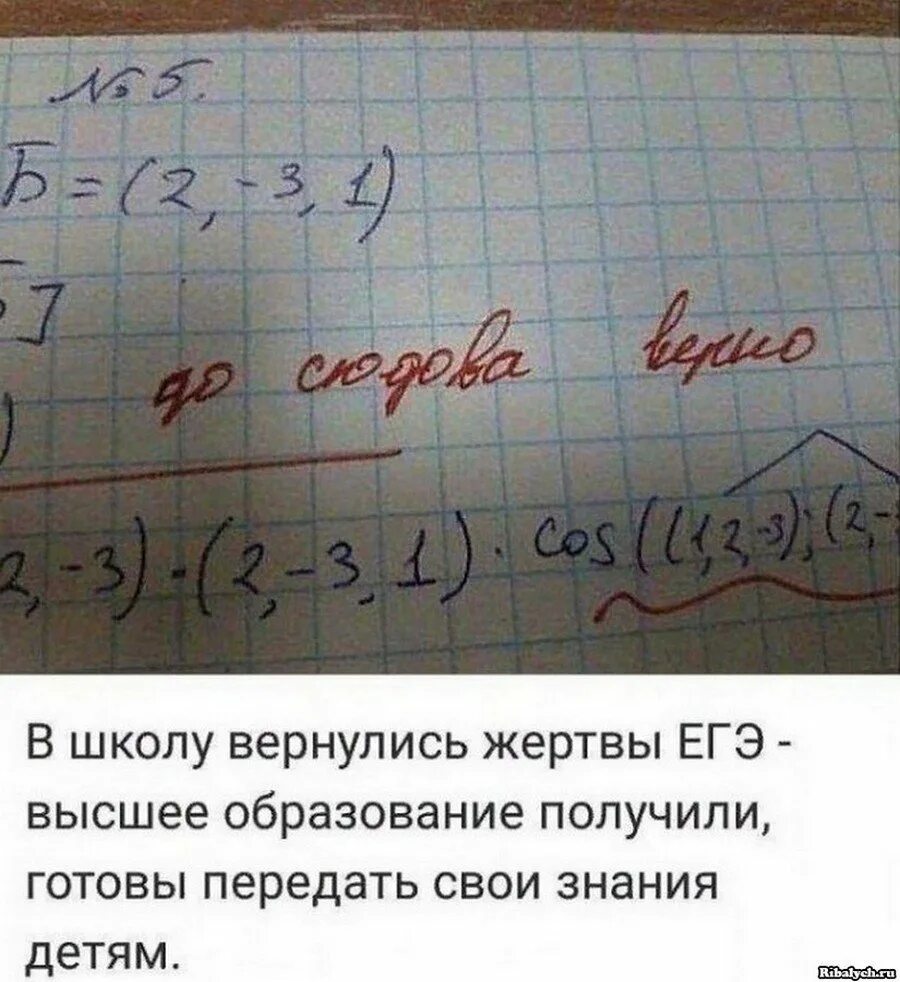 № 5.
Б = (2, -3, 1)
]
до сюдова верно
)
2, -3) · (2, -3, 1) · cos((1, 2, -3); (2, -3
В школу вернулись жертвы ЕГЭ -
высшее образование получили,
готовы передать свои знания
детям.
Ribalych.ru